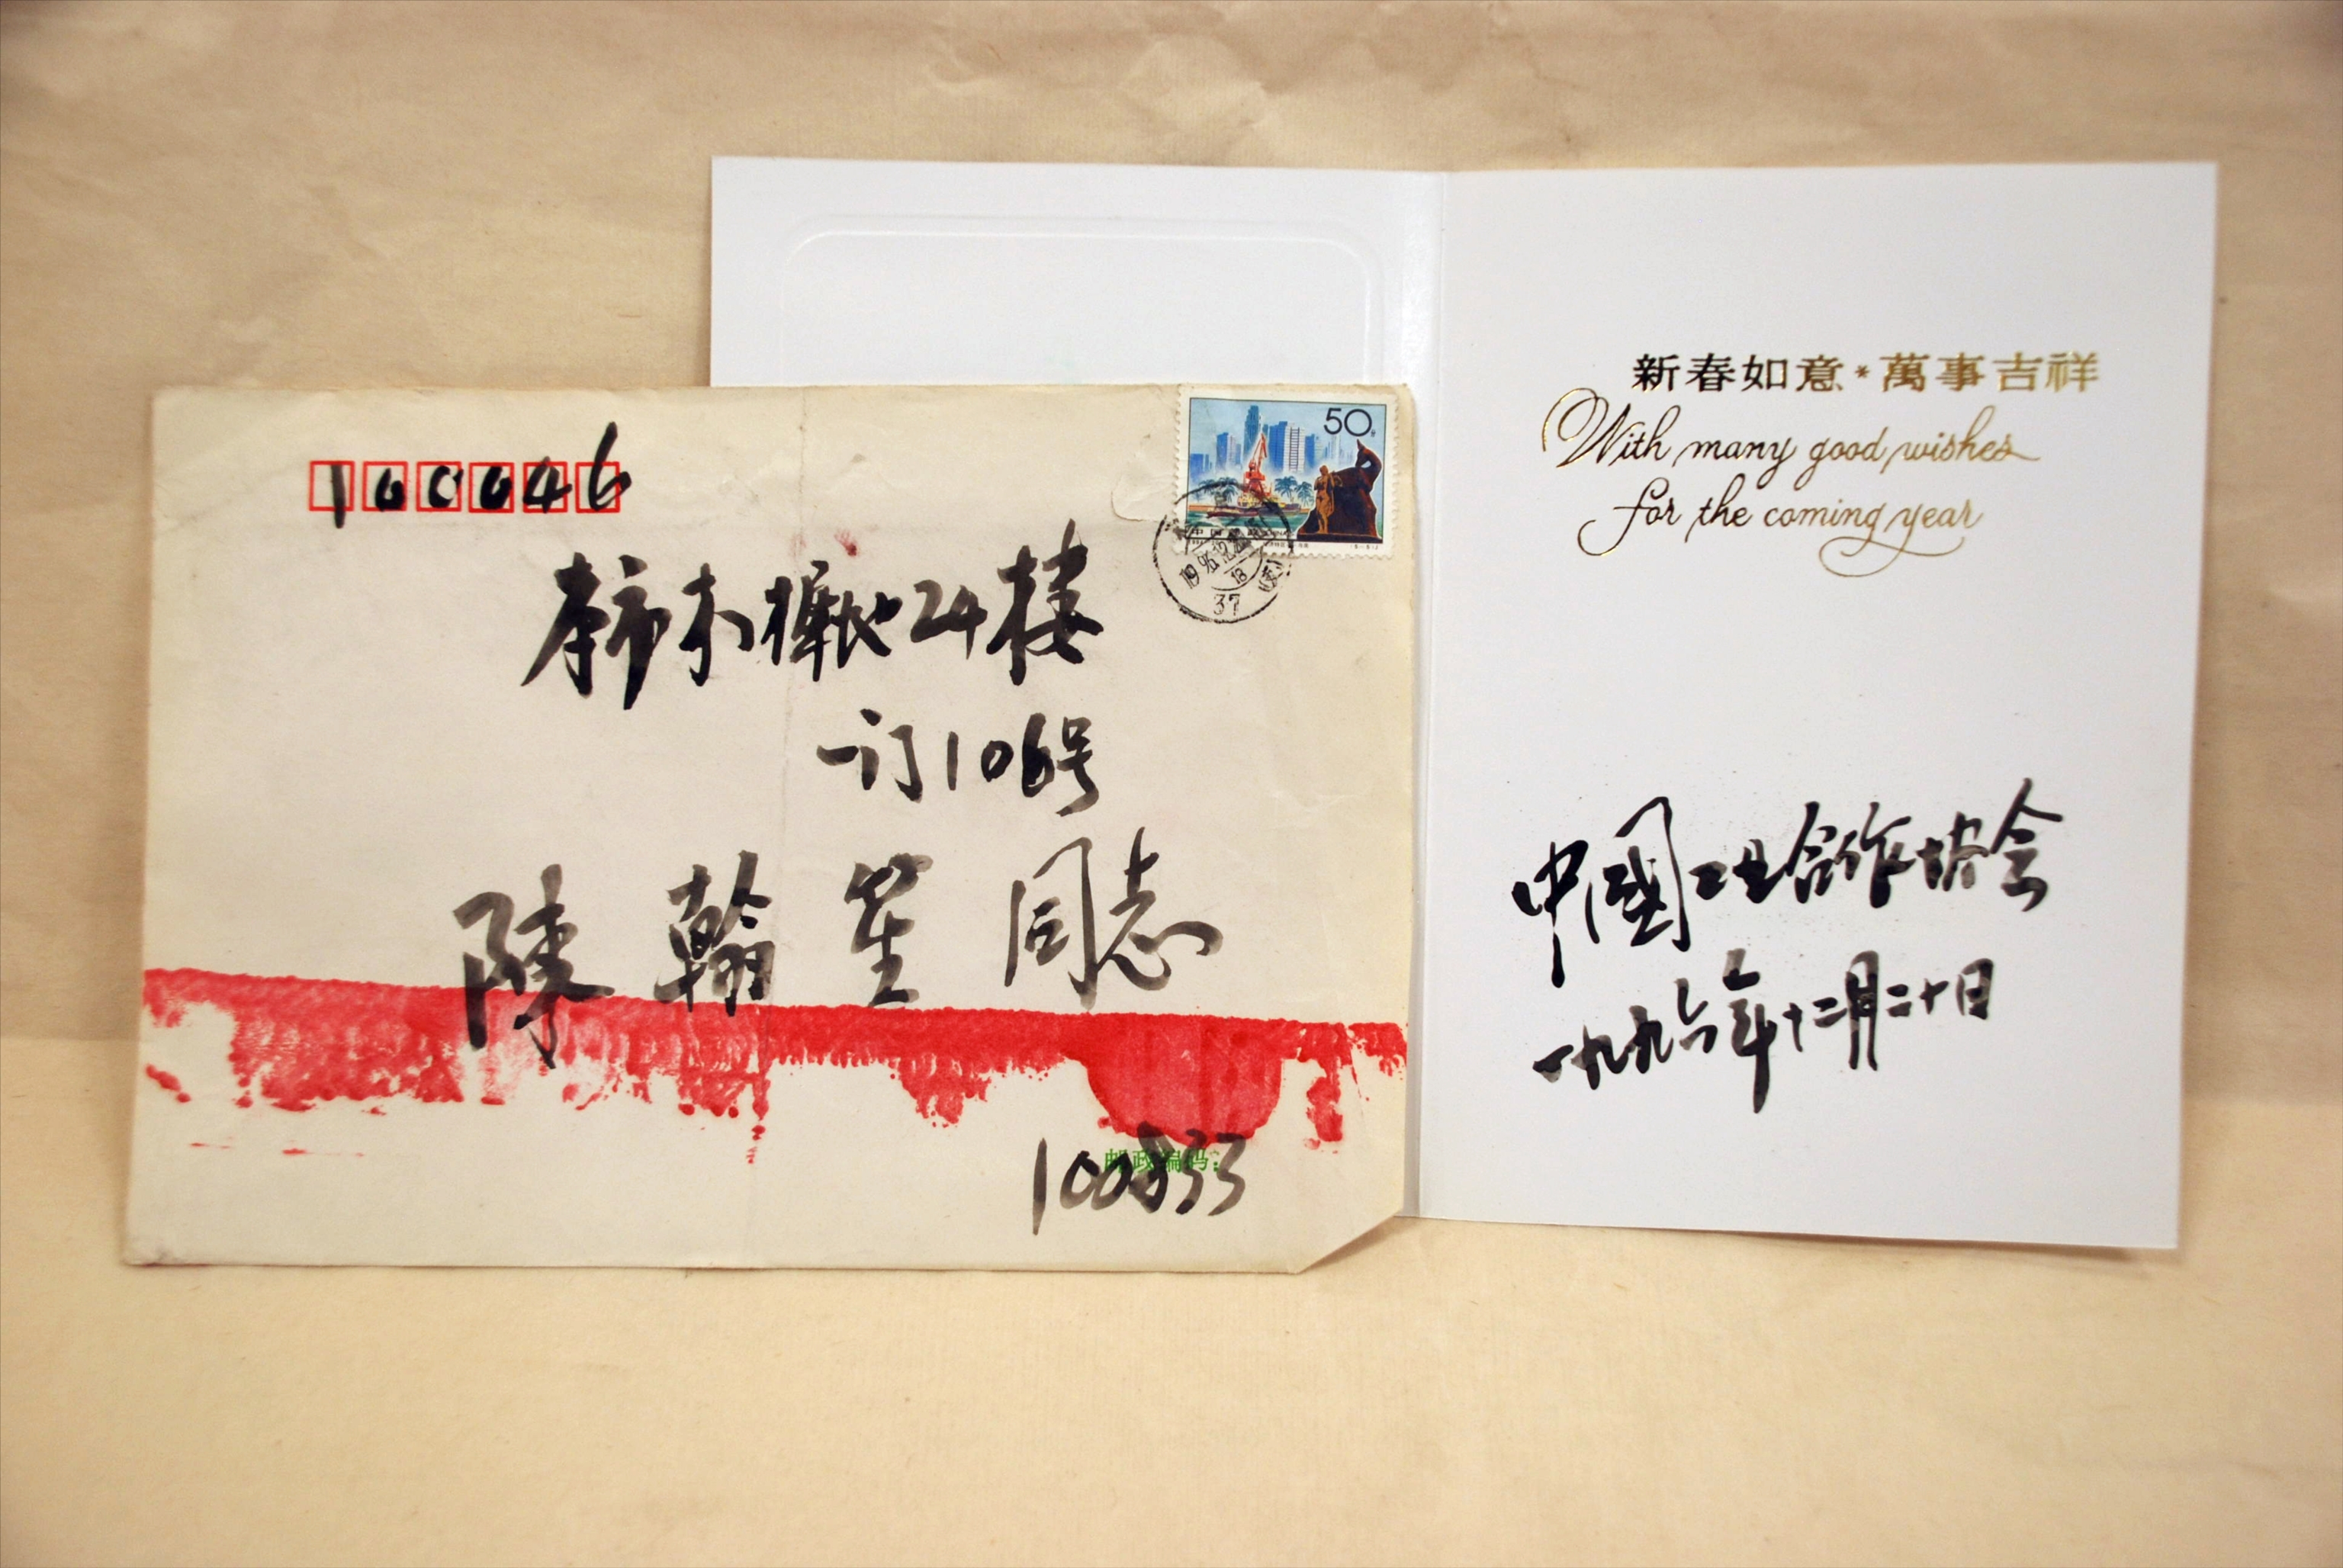 100046
本市木樨地24楼
一门106号
陳翰笙同志
邮政编码：
100833
50分
37
新春如意*萬事吉祥
With many good wishes
for the coming year
中國工业合作协会
一九九六年十二月二十日